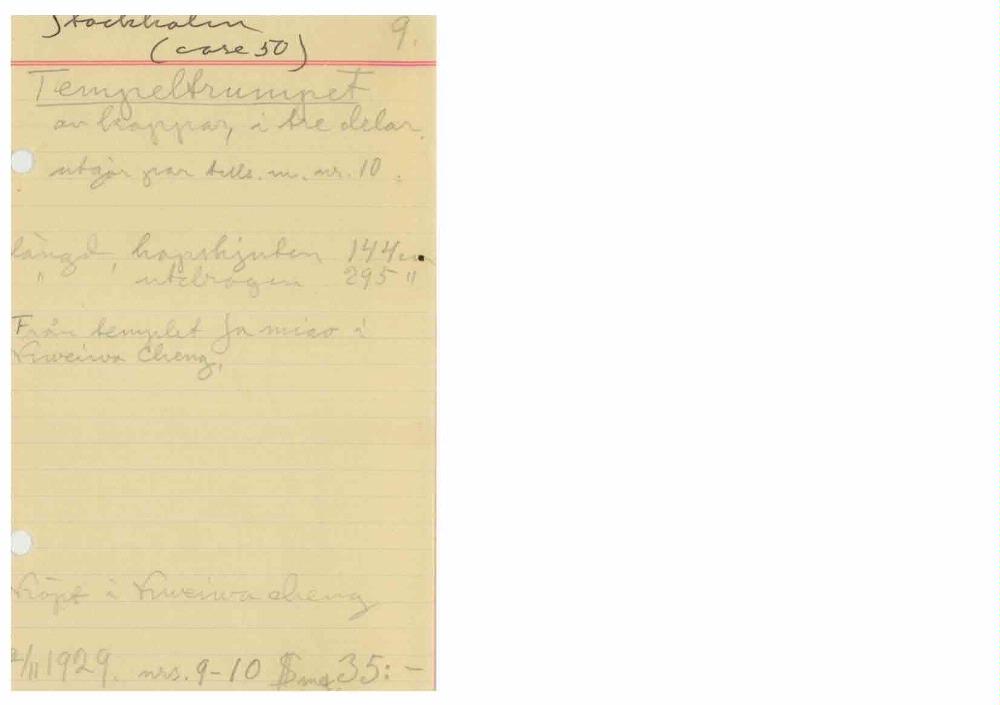 Stockholm
(case 50)
9.
Tempeltrumpet
av koppar, i tre delar.
utgör par tills. m. nr. 10.
längd, hopskjuten 144 cm
" utdragen 295 "
Från templet Ja miao i
Kweiwa Cheng.
Köpt i Kweiwa cheng
2/11 1929. nrs. 9-10 $ 35:-